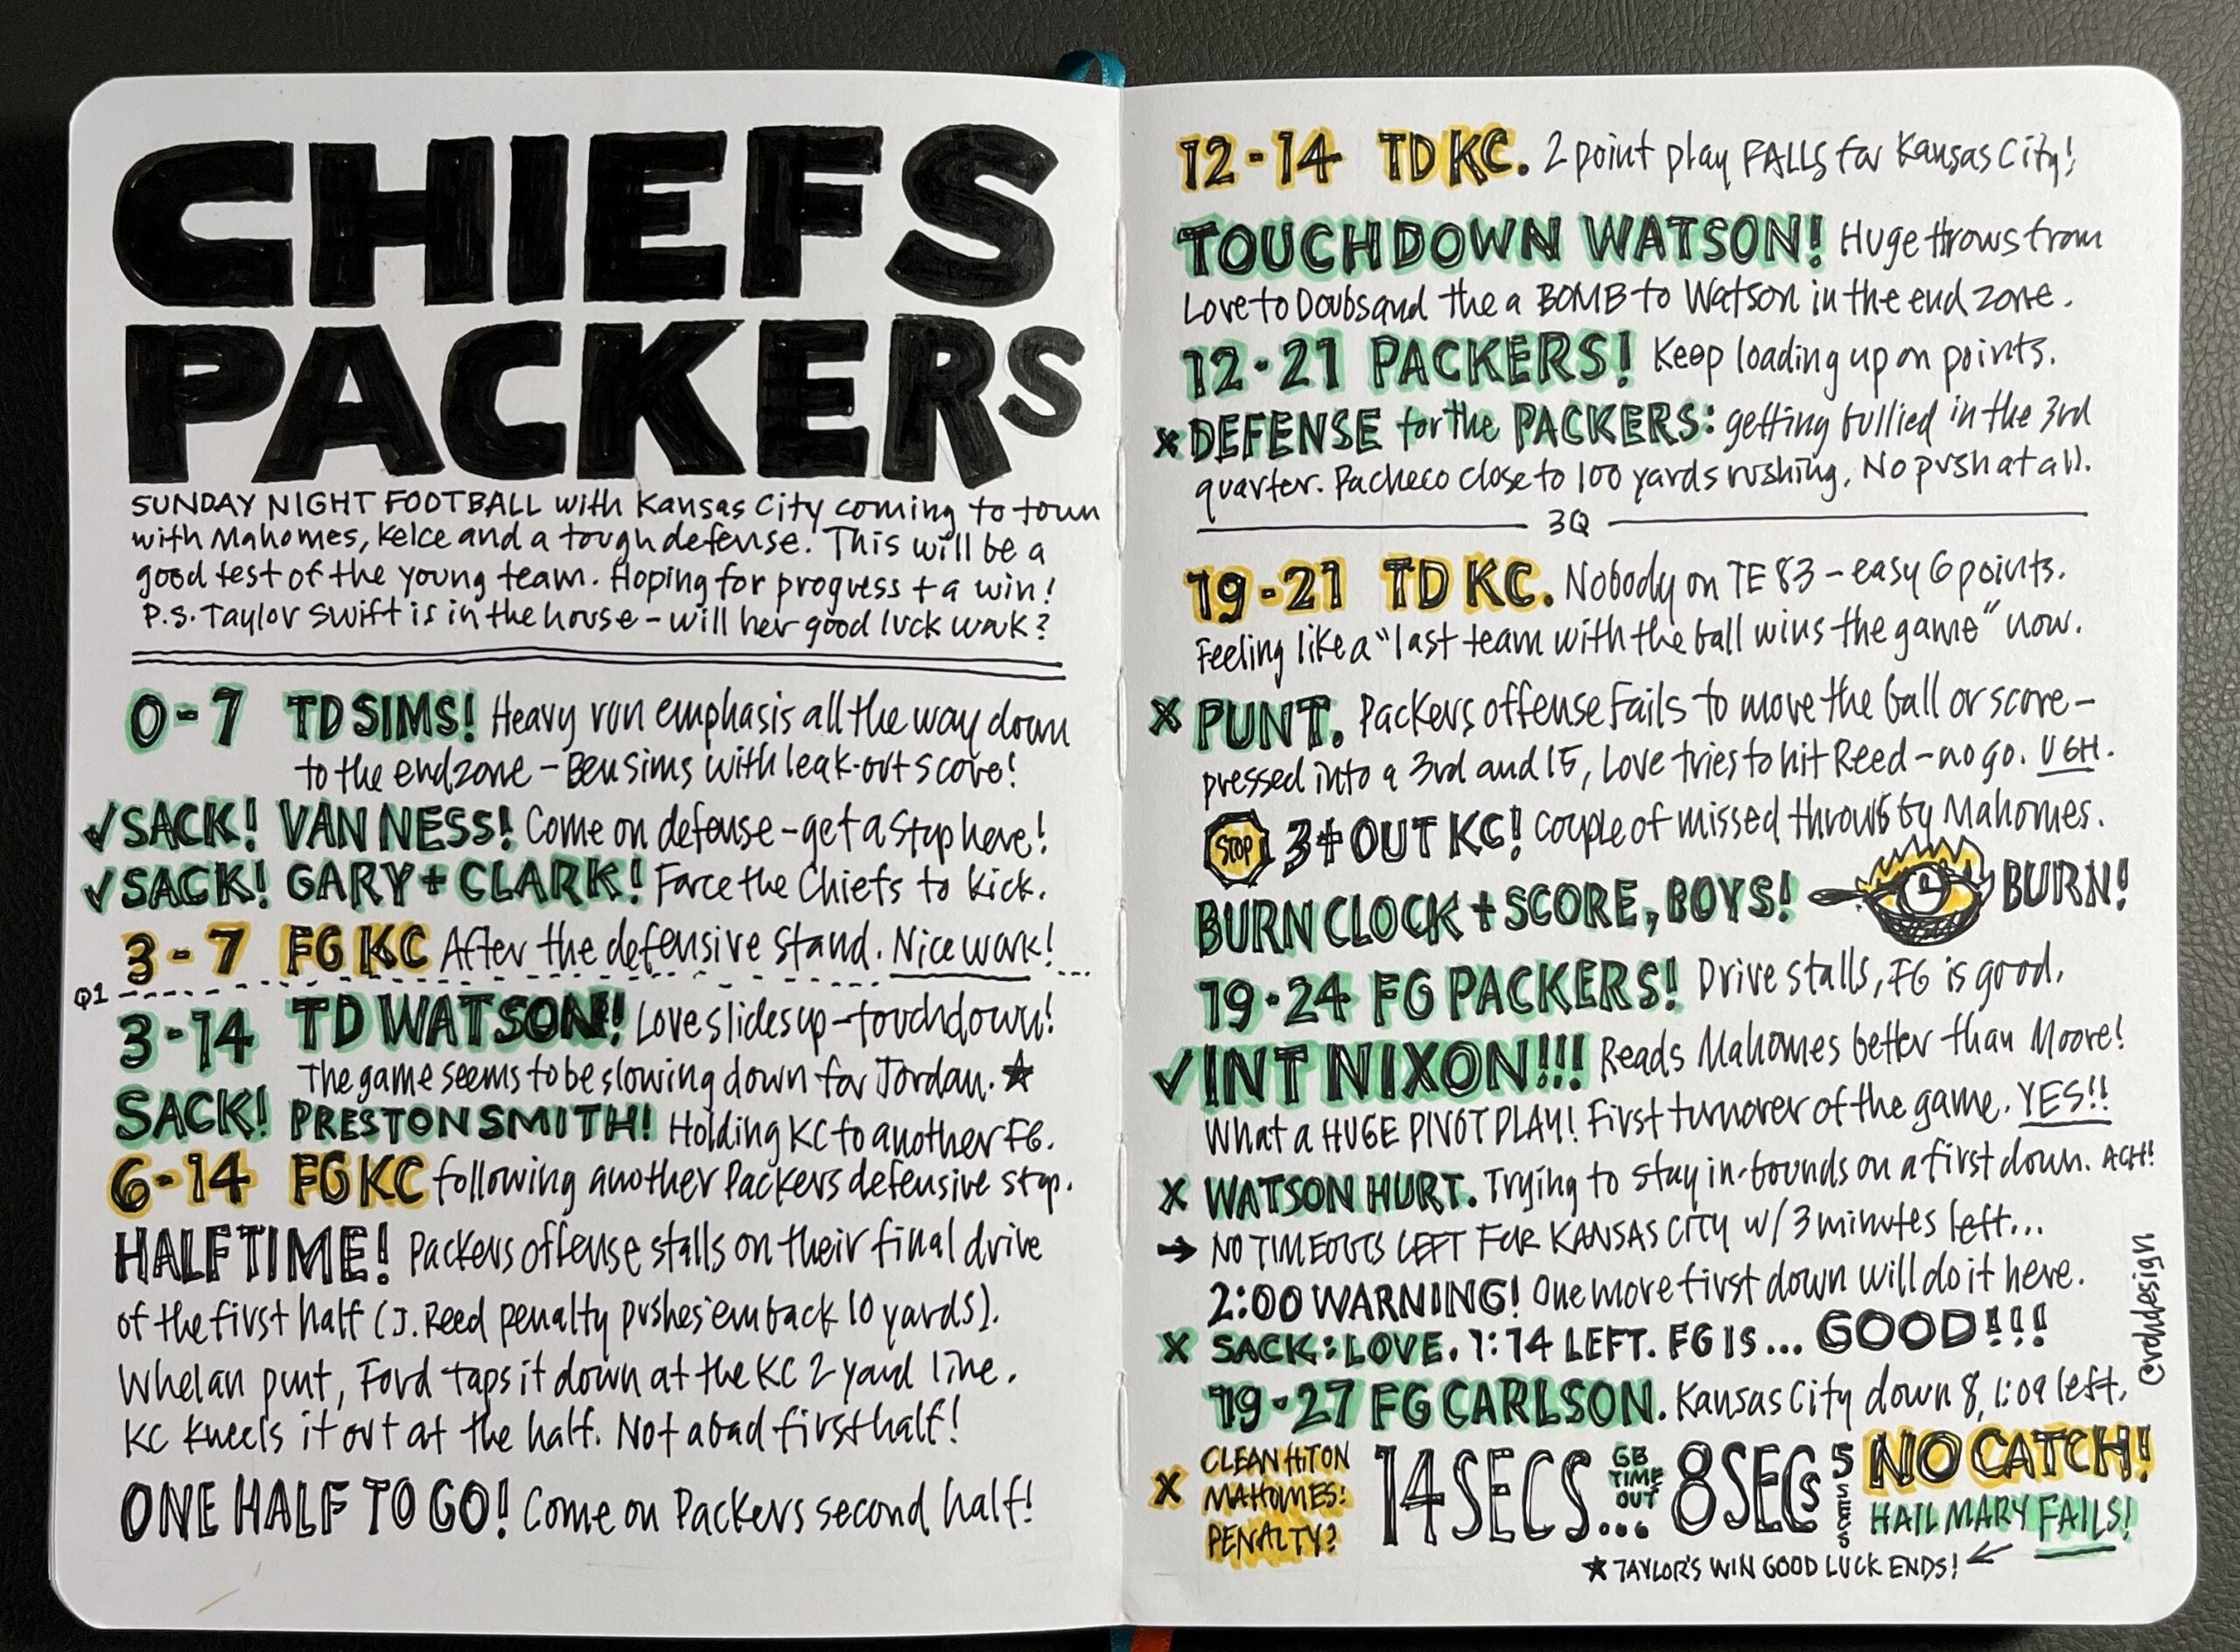 CHIEFS
PACKERS
SUNDAY NIGHT FOOTBALL with Kansas City coming to town
with Mahomes, Kelce and a tough defense. This will be a
good test of the young team. Hoping for progress + a win!
P.S. Taylor Swift is in the house - will her good luck work?
0-7 TD SIMS! Heavy run emphasis all the way down
to the endzone - Ben Sims with leak-out score!
✓SACK! VAN NESS! Come on defense - get a stop here!
✓SACK! GARY + CLARK! Force the Chiefs to kick.
3-7 FG KC After the defensive stand. Nice work!
Q1
3-14 TD WATSON! Love slides up - touchdown!
The game seems to be slowing down for Jordan. ★
SACK! PRESTON SMITH! Holding KC to another FG.
6-14 FG KC following another Packers defensive stop.
HALFTIME! Packers offense stalls on their final drive
of the first half (J. Reed penalty pushes 'em back 10 yards).
Whelan punt, Ford taps it down at the KC 2 yard line.
KC kneels it out at the half. Not a bad first half!
ONE HALF TO GO! Come on Packers second half!
12-14 TD KC. 2 point play FALLS for Kansas City!
TOUCHDOWN WATSON! Huge throws from
Love to Doubs and the a BOMB to Watson in the end zone.
12-21 PACKERS! Keep loading up on points.
x DEFENSE for the PACKERS: getting bullied in the 3rd
quarter. Pacheco close to 100 yards rushing. No push at all.
3Q
19-21 TD KC. Nobody on TE 83 - easy 6 points.
Feeling like a "last team with the ball wins the game" now.
x PUNT. Packers offense fails to move the ball or score -
pressed into a 3rd and 15, Love tries to hit Reed - no go. UGH.
STOP 3 + OUT KC! Couple of missed throws by Mahomes.
BURN CLOCK + SCORE, BOYS! BURN!
19-24 FG PACKERS! Drive stalls, FG is good.
✓INT NIXON!!! Reads Mahomes better than Moore!
What a HUGE PIVOT PLAY! First turnover of the game. YES!!
x WATSON HURT. Trying to stay in-bounds on a first down. ACH!
→ NO TIMEOUTS LEFT FOR KANSAS CITY w/ 3 minutes left...
2:00 WARNING! One more first down will do it here.
x SACK: LOVE. 1:14 LEFT. FG IS... GOOD!!!
19-27 FG CARLSON. Kansas City down 8, 1:09 left.
x CLEAN HIT ON
MAHOMES:
PENALTY?
14 SECS...
GB
TIME
OUT
8 SECS
5
SECS
NO CATCH!
HAIL MARY FAILS!
★ TAYLOR'S WIN GOOD LUCK ENDS!
@rohdesign